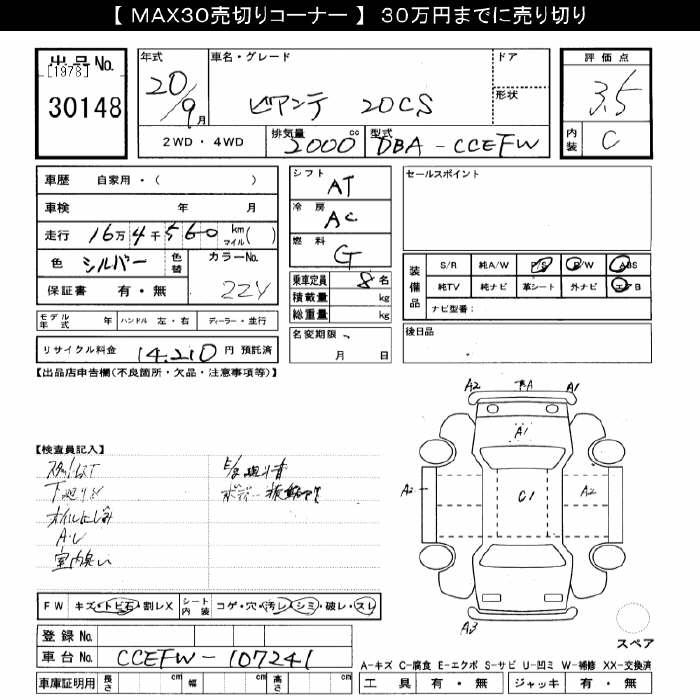 【 MAX30売切りコーナー 】 30万円までに売り切り
出品No.
[1978]
30148
年式
20/9月
車名・グレード
ビアンテ 20CS
ドア
形状
2WD・4WD
排気量 2000 cc
型式 DBA-CCEFW
評価点
3.5
内装 C
車歴 自家用・( )
車検 年 月
走行 16万4千560 km マイル( )
色 シルバー 色替
カラーNo. 22V
保証書 有・無
モデル年式 年 ハンドル 左・右 ディーラー・並行
リサイクル料金 14,210 円 預託済
シフト AT
冷房 AC
燃料 G
乗車定員 8 名
積載量 kg
総重量 kg
名変期限 月 日
セールスポイント
装備品
S/R 純A/W P/S P/W ABS
純TV 純ナビ 革シート 外ナビ エアB
ナビ型番:
後日品
【出品店申告欄(不良箇所・欠品・注意事項等)】
【検査員記入】
下廻りサビ
オイルにじみ
A・U
室内臭い
A2
A1
A1
A2
C1
A2
A3
スペア
FW キズ・トビ石・割レX
シート内装 コゲ・穴・汚レ・シミ・破レ・スレ
登録No.
車台No. CCEFW-107241
車庫証明用 長さ cm 幅 cm 高さ cm
A-キズ C-腐食 E-エクボ S-サビ U-凹ミ W-補修 XX-交換済
工具 有・無 ジャッキ 有・無